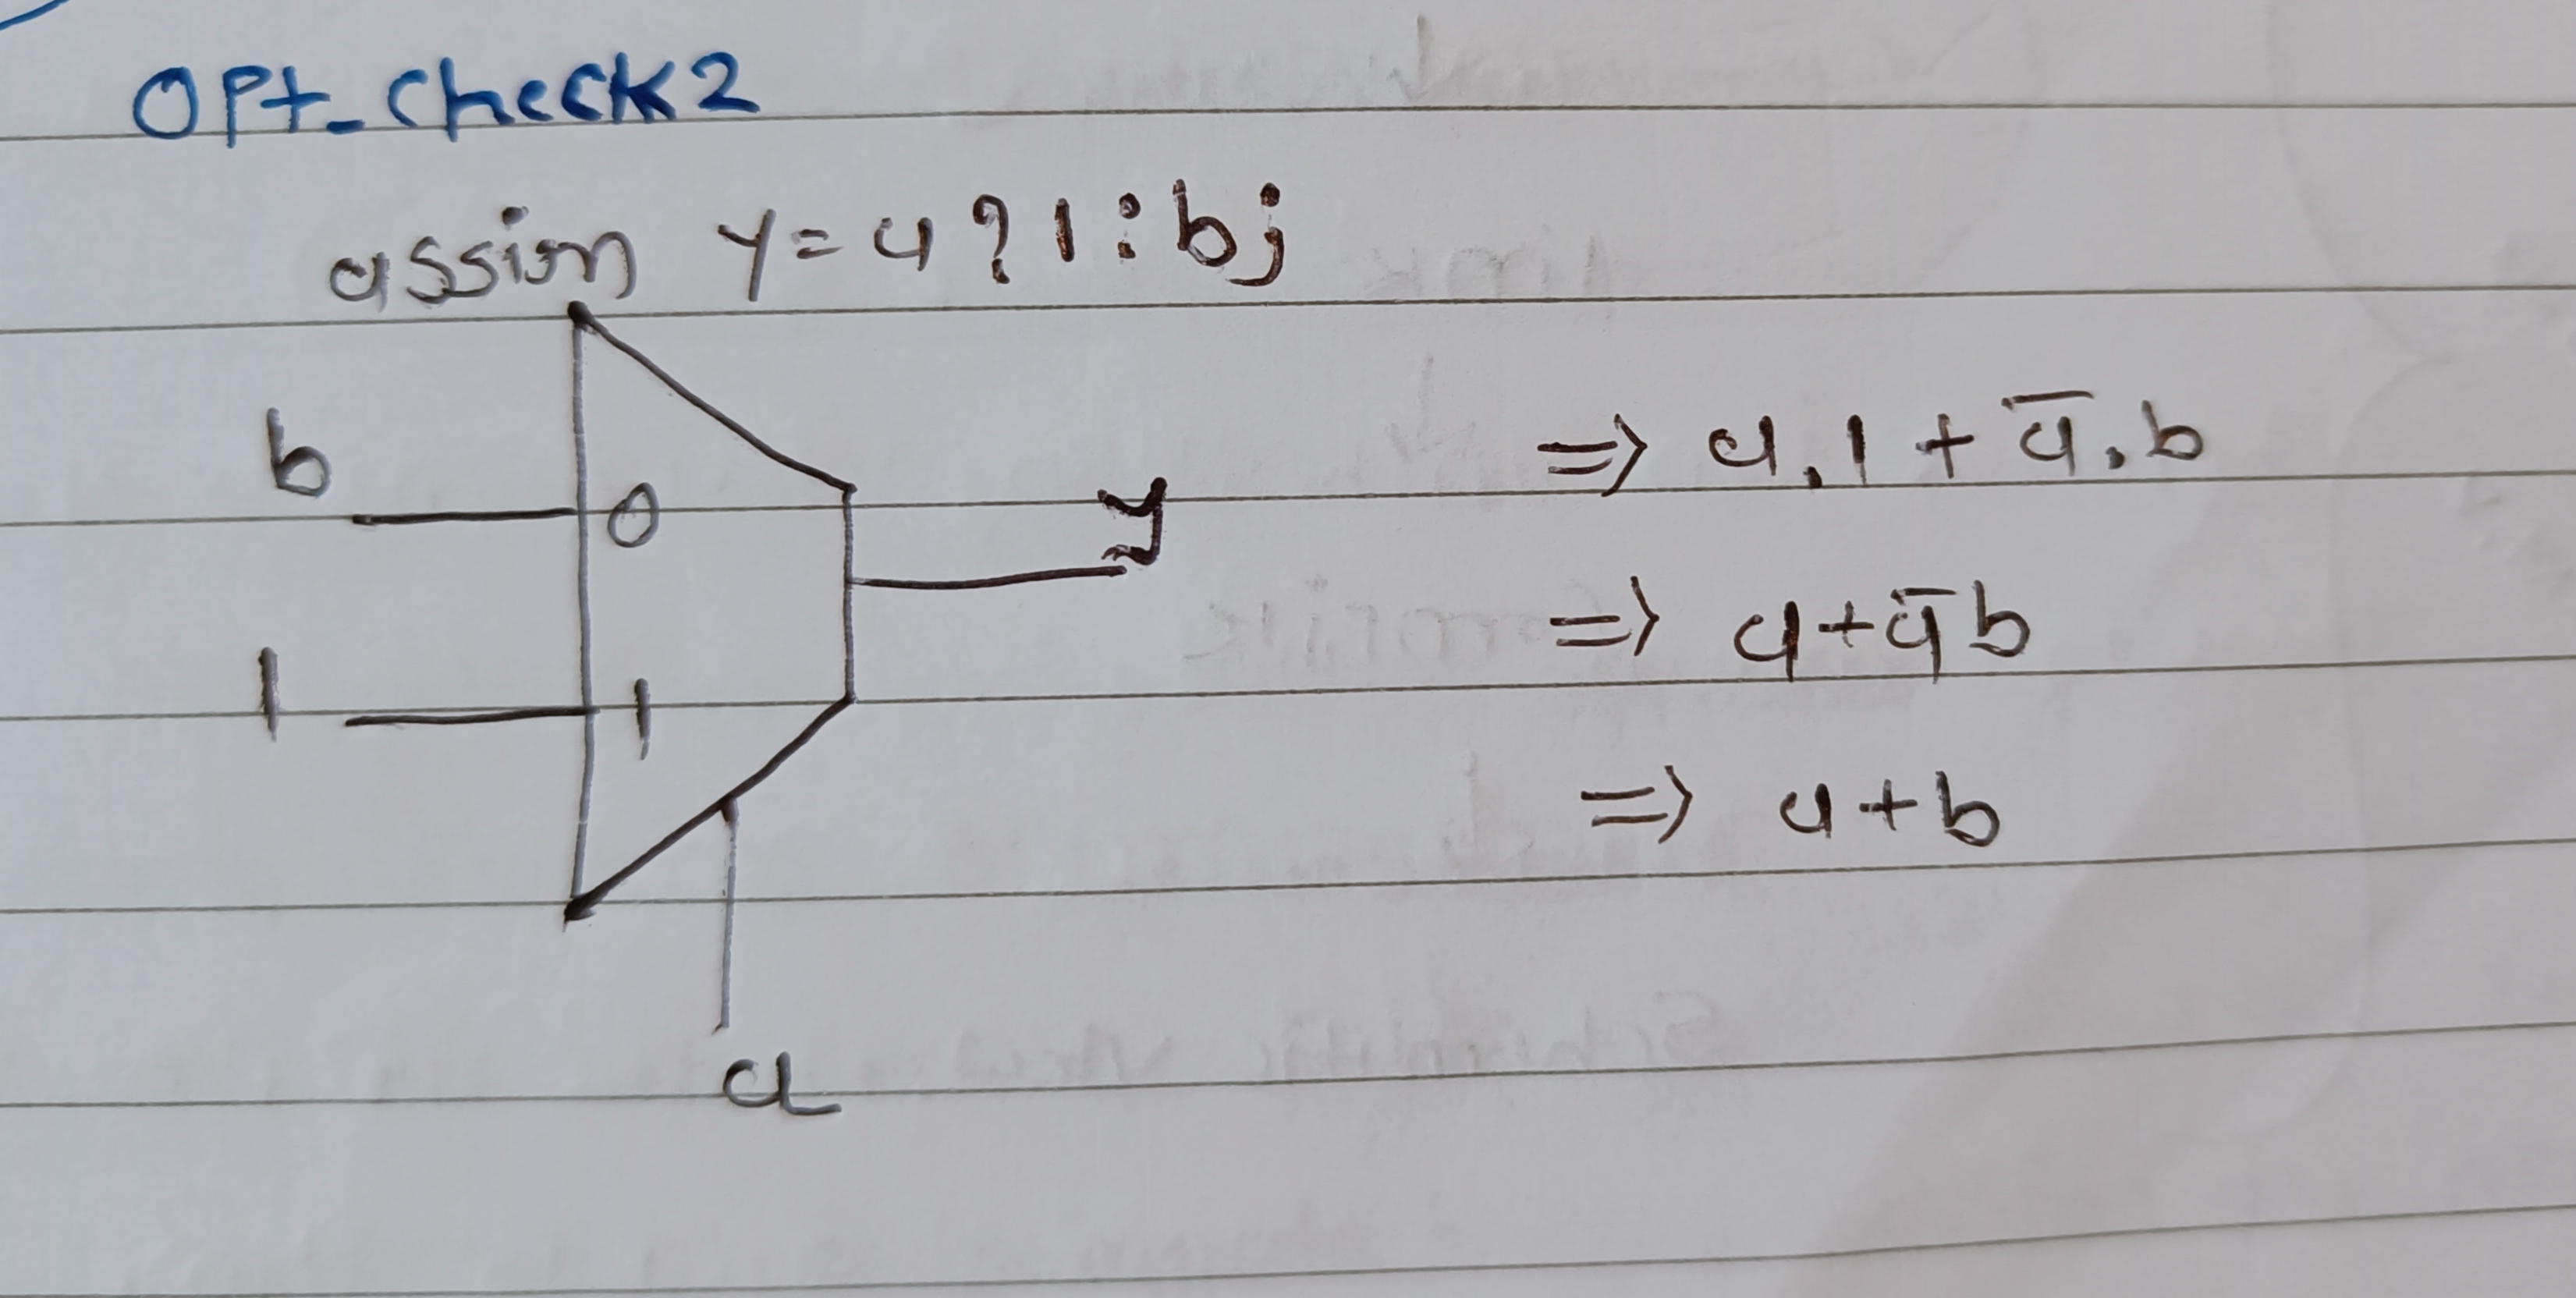 OPt_check2
assign y=a?1:b;
b
0
y
1
1
a
=> a.1 + a̅.b
=> a+a̅b
=> a+b